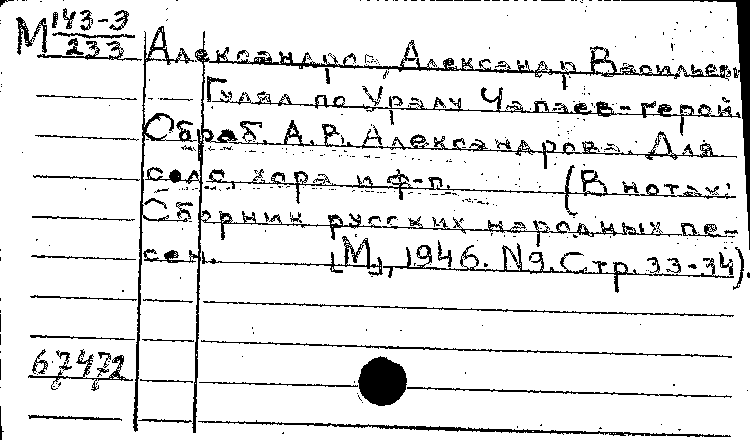 М 143-Э
233
Александров, Александр Васильеви
Гулял по Уралу Чапаев-герой.
Обраб. А. В. Александрова. Для
соло, хора и ф-п. (В нотах:
Сборник русских народных пе-
сен. [М.], 1946. N9. Стр. 33-34).
67472